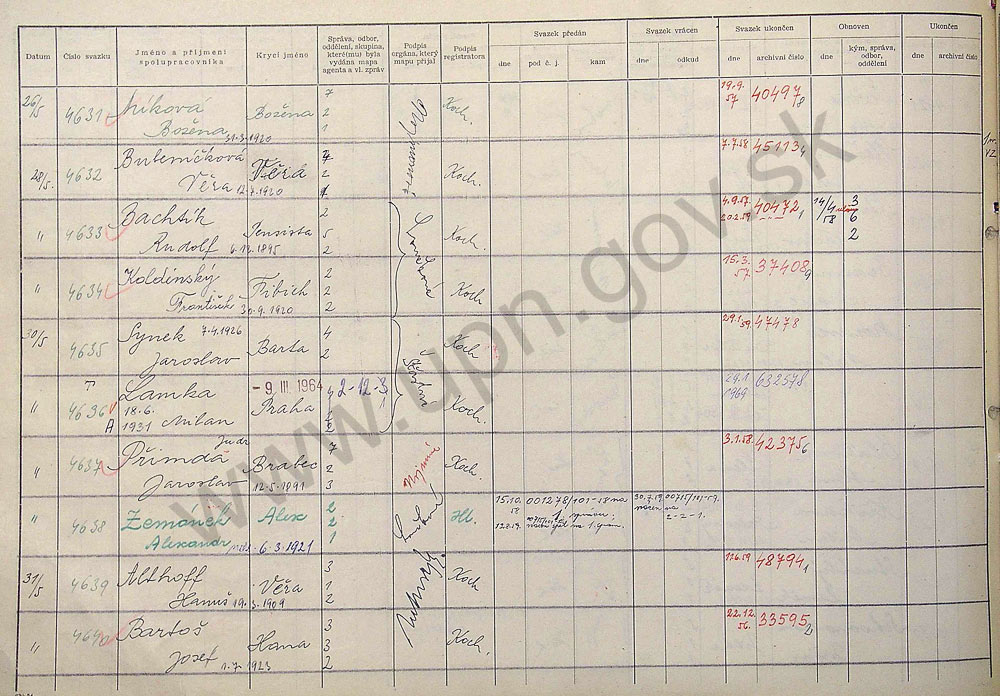 Datum
Číslo svazku
Jméno a příjmení spolupracovníka
Krycí jméno
Správa, odbor, oddělení, skupina, které(mu) byla vydána mapa agenta a vl. zpráv
Podpis orgána, který mapu přijal
Podpis registratora
Svazek předán
dne
pod č. j.
kam
Svazek vrácen
dne
odkud
Svazek ukončen
dne
archivní číslo
Obnoven
kým, správa, odbor, oddělení
Ukončen
dne
archivní číslo
26/5 4631 níková Božena 7 Koch. 19.9. 57 40497 8
Božena 31.3.1920 2 1
28/5. 4632 Bubeníčková Věra 2 Koch. 7.7.58 45113
Věra 1920
" 4633 Bachtík Pensista 2 5 2 Koch. 4.9.57 20.2.59 40472 1 14/4 58 3 6 2
Rudolf 6.12.1895
" 4634 Koldinský Fibich 2 2 2 Koch 15.3. 57 37408 9
František 30.9.1920
30/5 4635 Synek 7.4.1926 Barta 4 2 2 Koch 29.1.59 47478
Jaroslav
" 4636 Lamka - 9 III. 1964 2-12-3 Koch. 29.1. 1969 632578
18.6. Praha
A 1931 Milan
" 4637 Přimda Judr Brabec 7 2 3 Koch. 3.1.58. 42375 6
Jaroslav 12.5.1891
" 4638 Zemánek Alex 2 2 1 Hl. 15.10. 58 001278/101-18 na 1. správu. 30.7.59
Alexandr 6.3.1921 2-2-1.
31/5 4639 Althoff Věra 3 1 2 Koch 48794 1
Hanuš 19.3.1909
" Bartoš Hana 3 3 2 Koch. 22.12. 56. 33595 2
Josef 1.7.1923
www.upn.gov.sk